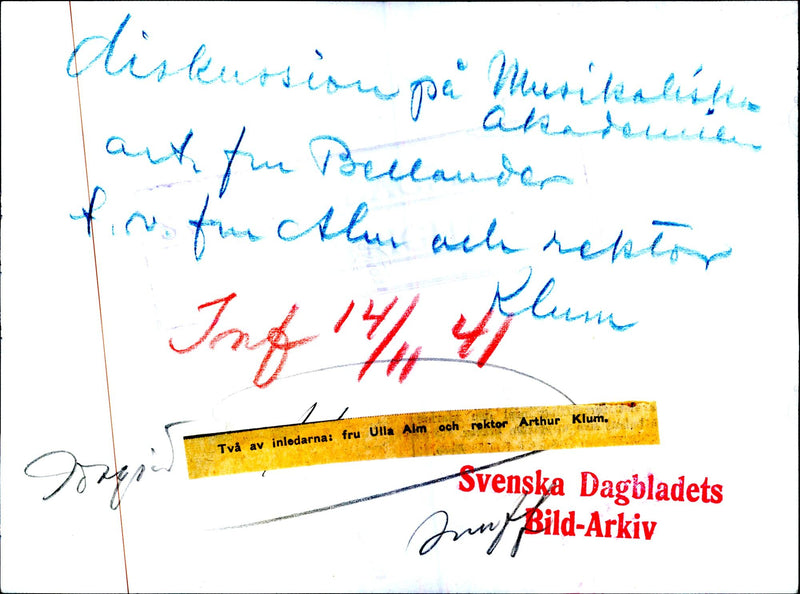 diskussion på Musikaliska
Akademien
ant. fru Bellander
t.v. fru Alm och rektor
Klum
Inf 14/11 41
Två av inledarna: fru Ulla Alm och rektor Arthur Klum.
Ingrid
Svenska Dagbladets
Bild-Arkiv